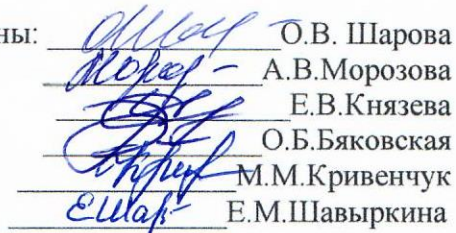 ны: О.В. Шарова
А.В.Морозова
Е.В.Князева
О.Б.Бяковская
М.М.Кривенчук
Е.М.Шавыркина